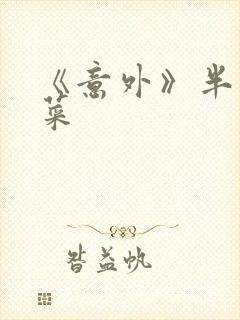 《意外》半
菜
昝益帆